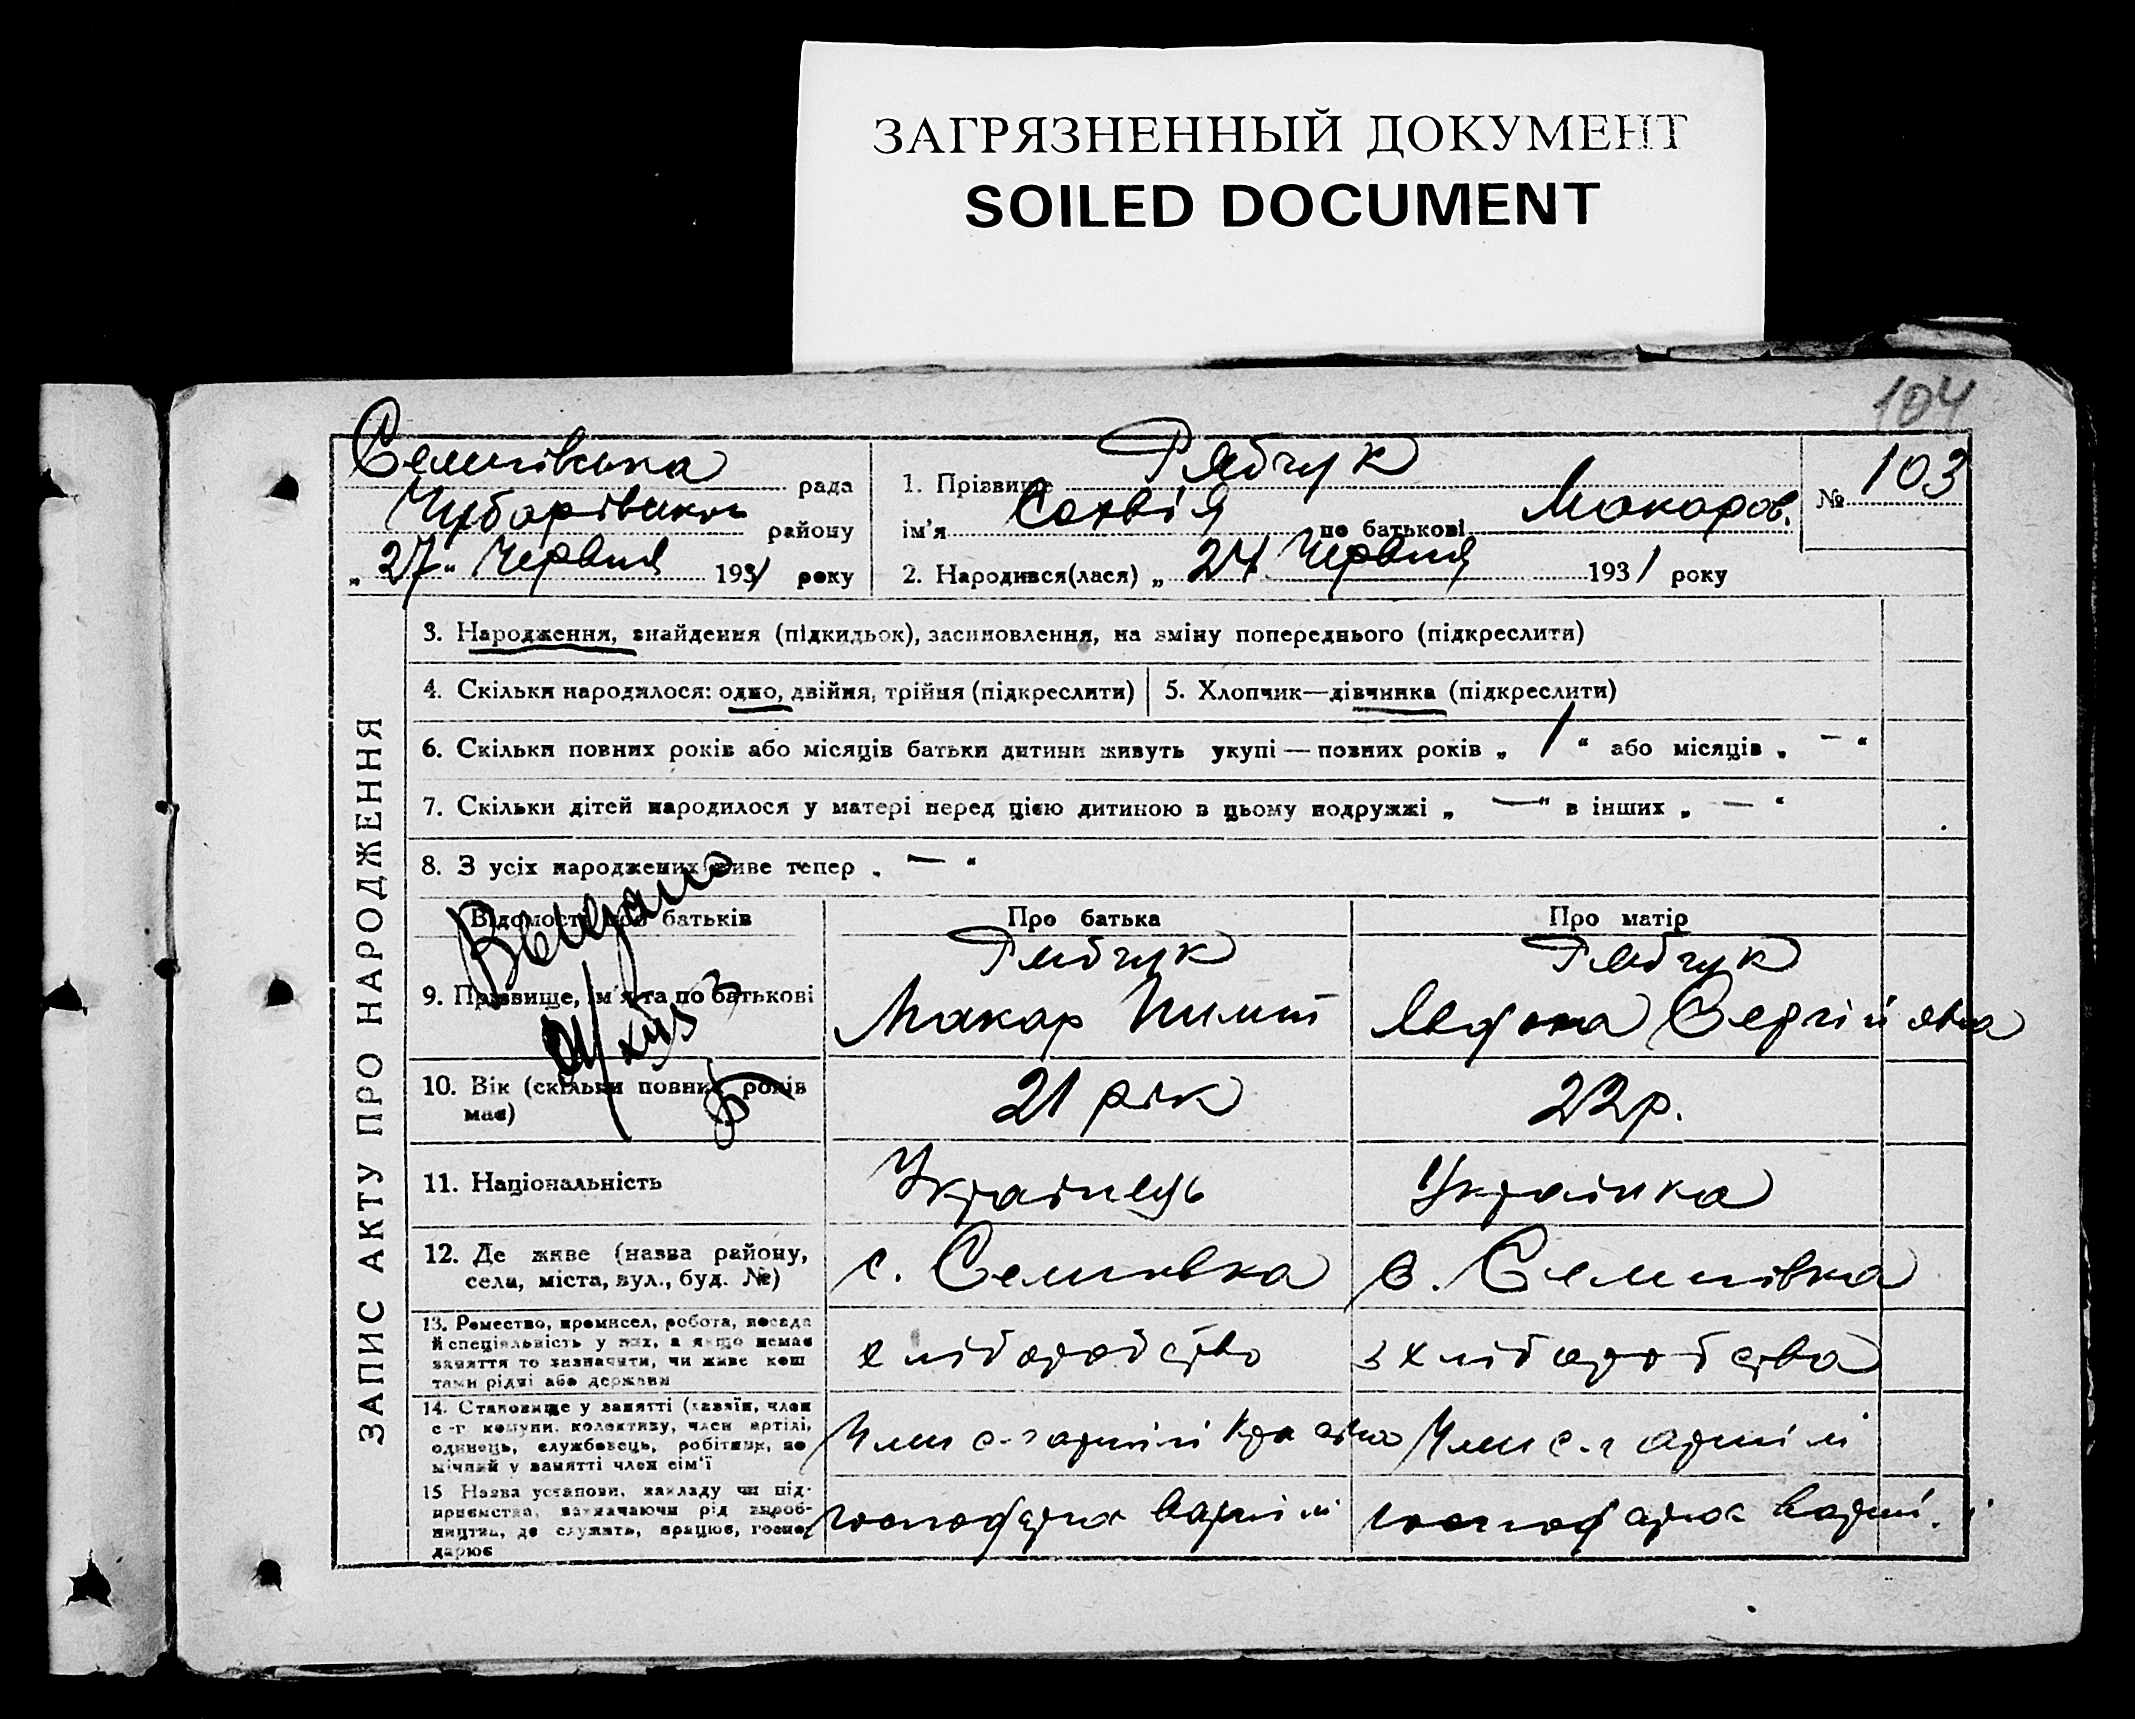 ЗАГРЯЗНЕННЫЙ ДОКУМЕНТ
SOILED DOCUMENT
104
Семенівська рада
Чубарівськ. району
„27“ Червня 1931 року
1. Прізвище Рябчук
ім'я по батькові Макаров.
№ 103
2. Народився(лася) „24 Червня 1931 року
ЗАПИС АКТУ ПРО НАРОДЖЕННЯ
3. Народження, знайдення (підкидьок), засиновлення, на зміну попереднього (підкреслити)
4. Скільки народилося: одно, двійня, трійня (підкреслити)
5. Хлопчик—дівчинка (підкреслити)
6. Скільки повних років або місяців батьки дитини живуть укупі — повних років „ 1 “ або місяців „ — “
7. Скільки дітей народилося у матері перед цією дитиною в цьому подружжі „ — “ в інших „ — “
8. З усіх народжених живе тепер „ — “
Відомості про батьків
Про батька
Про матір
9. Прізвище, ім'я та по батькові
Рябчук
Макар Пимит
Рябчук
Сергійовна
10. Вік (скільки повних років має)
21 рік
22р.
11. Національність
Українець
Українка
12. Де живе (назва району,
села, міста, вул., буд. №)
с. Семенівка
с. Семенівка
13. Ремество, промисел, робота, посада
й спеціяльність у них, а якщо немає
заняття то зазначити, чи живе кош
тами рідні або держави
хліборобство
з хліборобства
14. Становище у занятті (хазяїн, член
с-г комуни, колективу, член артілі,
одинець, службовець, робітник, по
мічний у занятті член сім'ї
Член с-г артілі
Член с-г артілі
15 Назва установи, закладу чи під-
приємства, зазначаючи рід вироб-
ництва, де служить, працює, госпо-
дарює
господарює в артілі
господарює в артіл.